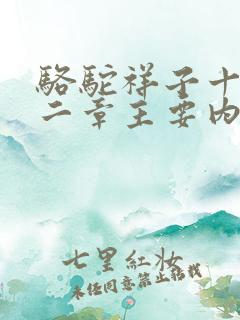 駱駝祥子十
二章主要内
七里紅妝
未经同意禁止搭载